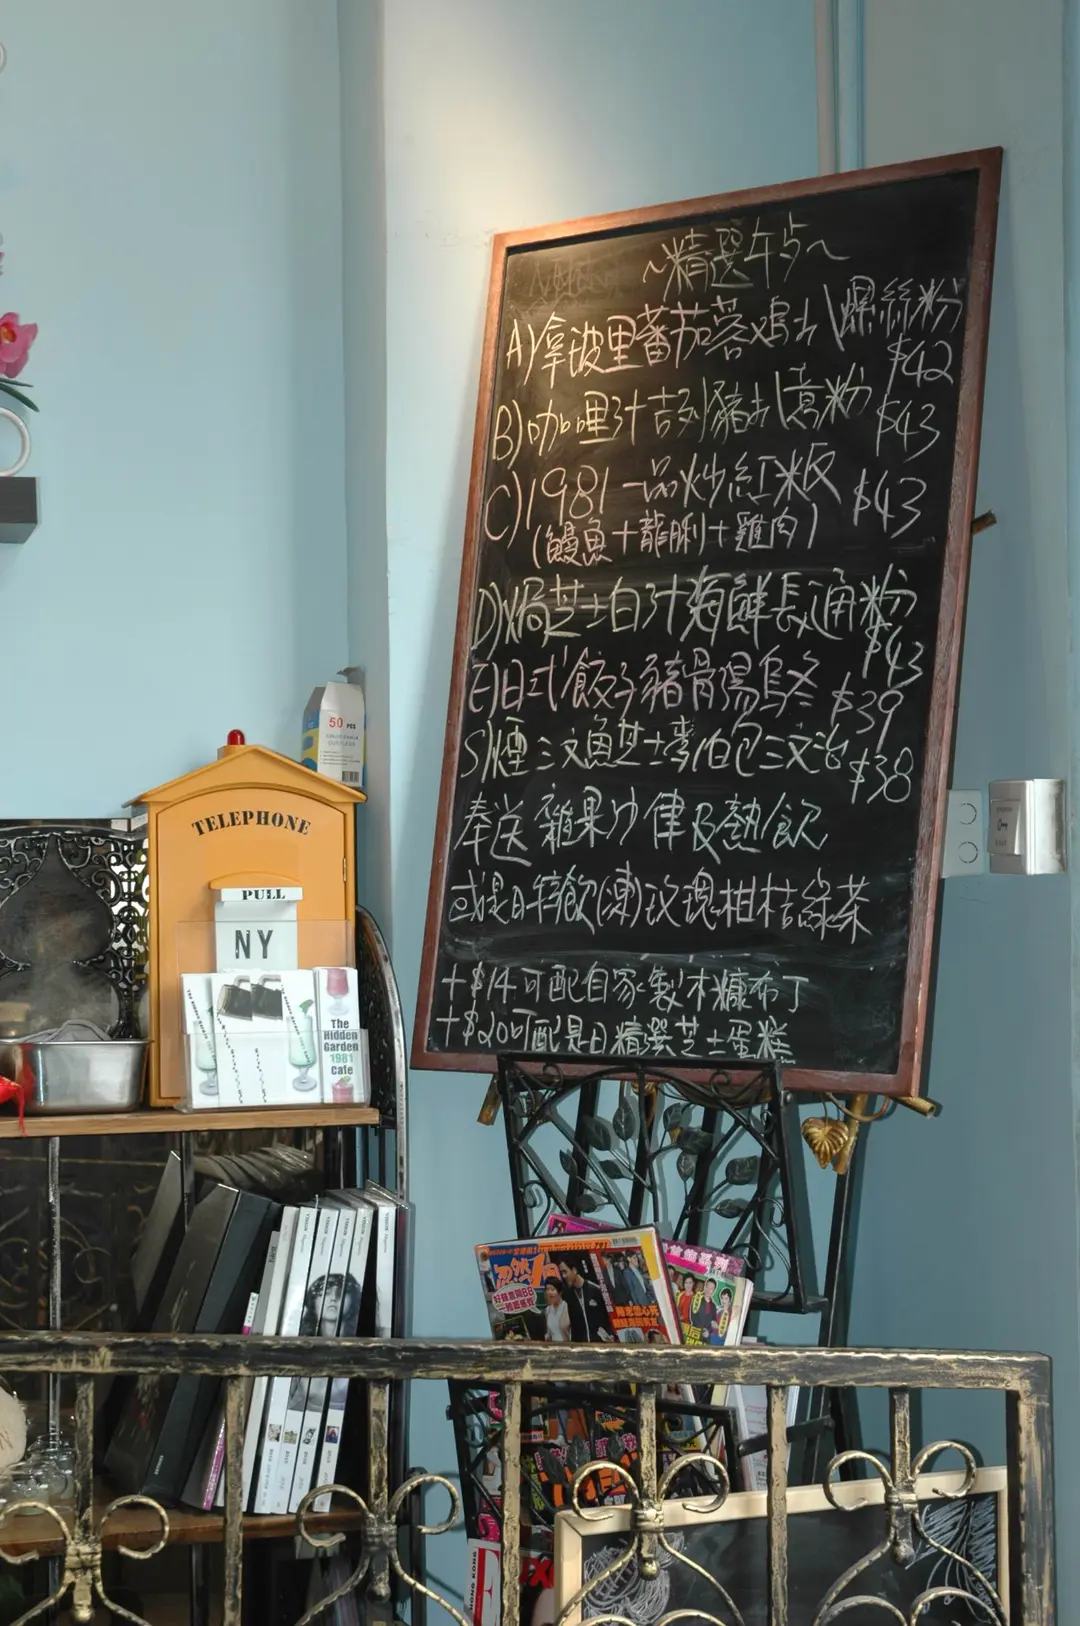 ~精選午歺~
A)拿玻里蕃茄蓉鸡扒螺絲粉
$42
B)咖哩汁吉列豬扒意粉 $43
C)1981一品炒紅米飯 $43
(鰻魚+龍脷+雞肉)
D)焗芝士白汁海鮮長通粉
$43
E)日式餃子豬骨湯烏冬 $39
S)煙三文魚芝士麥包三文治 $38
奉送雜果沙律及熱飲
或是日特飲(凍)玫瑰柑桔綠茶
+$14可配自家製木糠布丁
+$20可配是日精選芝士蛋糕
50 PCS
TELEPHONE
PULL
NY
The
Hidden
Garden
1981
Cafe
忽然1周
HONG KONG